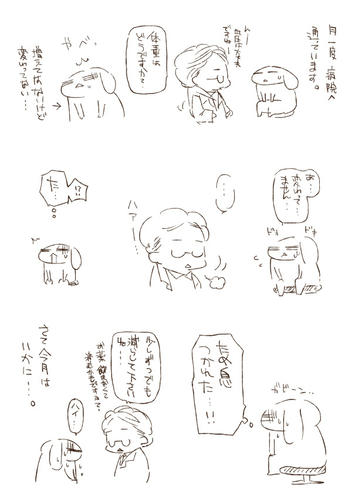 月一度、病院へ
通っています。
んー
血圧は大丈夫
ですねー
体重は
どうですか?
やべーん
増えてはないけど
変わってない…
お…
変わって
ません…
ドキ
ドキ
…
ハァー
!?
た…。
ガビーン…
ため息
つかれた…!!
少しずつでも
減らして下さい
ね…
お薬
ハイ…
さて今月は
いかに…。